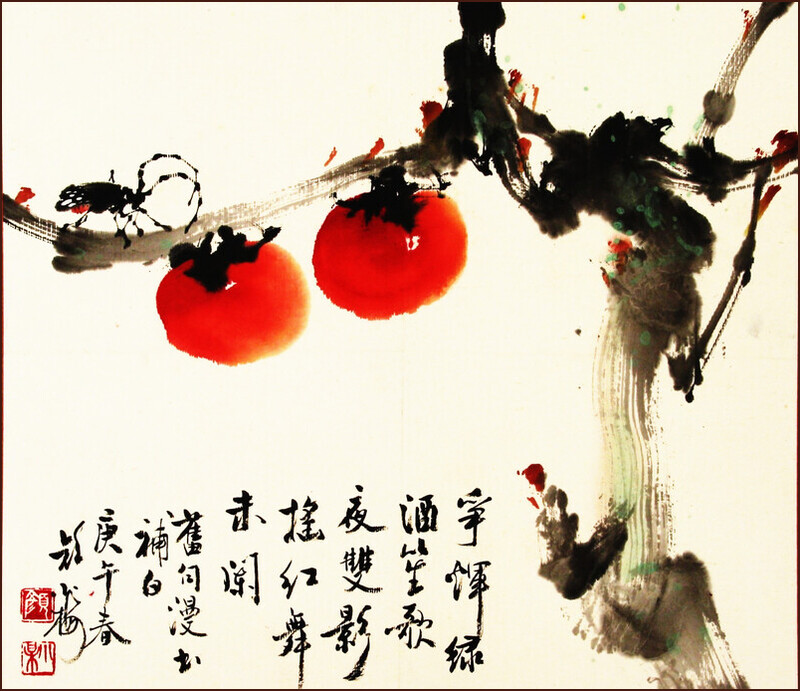 爭輝綠
酒笙歌
夜雙影
搖紅舞
未闌
舊句漫書
補白
庚午春
梅
顏